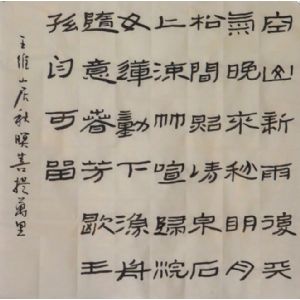 空山新雨後天
氣晚來秋明月
松間照清泉石
上流竹喧歸浣
女蓮動下漁舟
隨意春芳歇王
孫自可留
王維山居秋暝菩提萬里